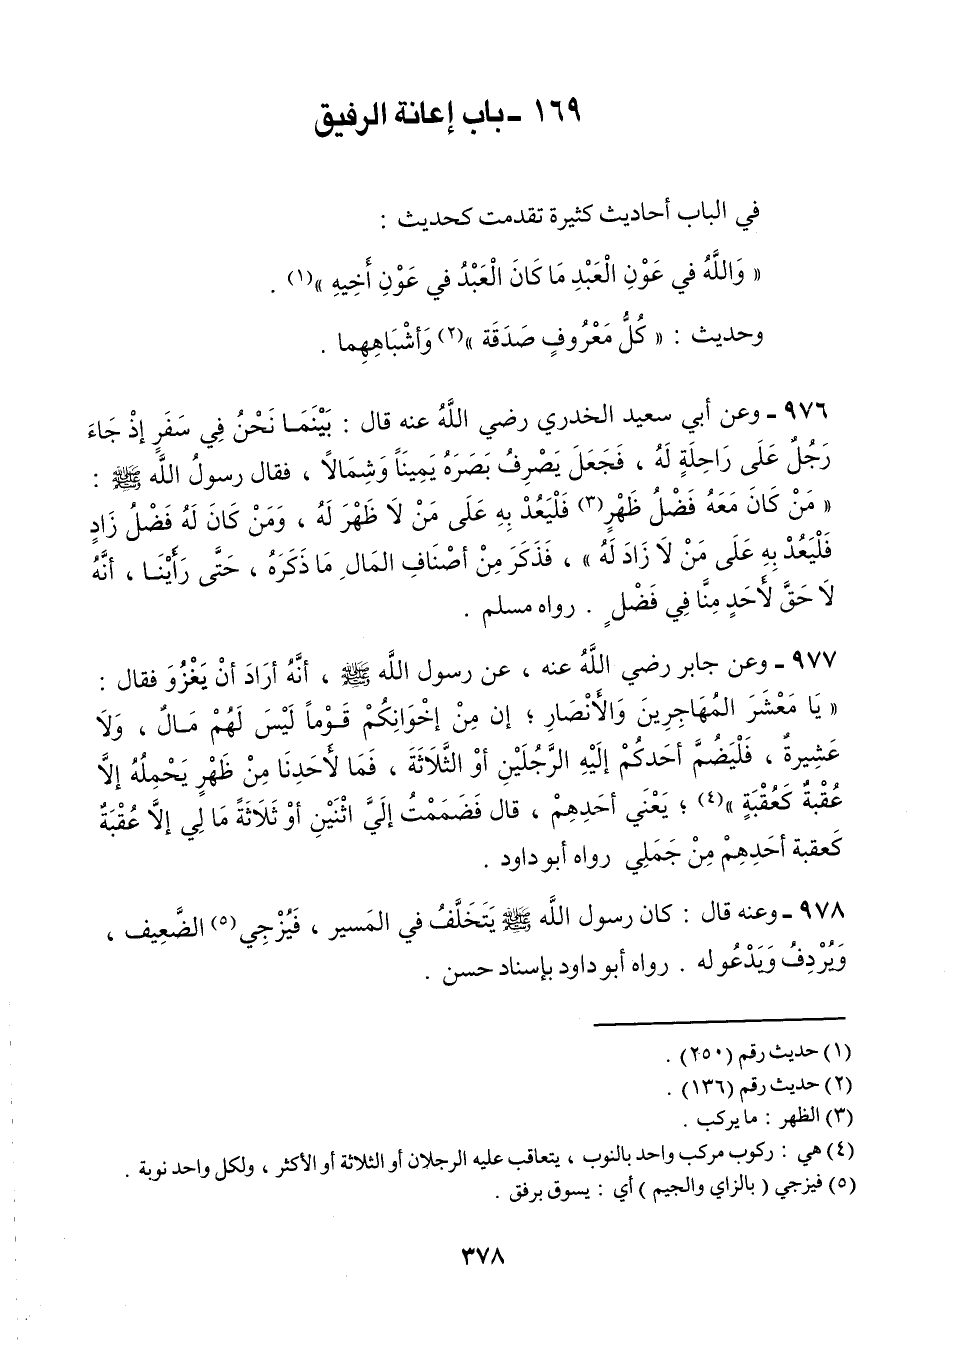 ١٦٩ ـ باب إعانة الرفيق
في الباب أحاديث كثيرة تقدمت كحديث :
« وَاللَّهُ في عَوْنِ الْعَبْدِ مَا كَانَ الْعَبْدُ في عَوْنِ أَخِيهِ »(١) .
وحديث : « كُلُّ مَعْرُوفٍ صَدَقَة »(٢) وَأَشْبَاهِهِما .
٩٧٦ ـ وعن أبي سعيد الخدري رضي اللَّهُ عنه قال : بَيْنَمَـا نَحْنُ فِي سَفَرٍ إذْ جَاءَ
رَجُلٌ عَلَى رَاحِلَةٍ لَهُ ، فَجَعَلَ يَصْرِفُ بَصَرَهُ يَمِينَاً وَشِمَالاً ، فقال رسولُ اللَّه ﷺ :
« مَنْ كَانَ مَعَهُ فَضْلُ ظَهْرٍ(٣) فَلْيَعُدْ بِهِ عَلَى مَنْ لاَ ظَهْرَ لَهُ ، وَمَنْ كَانَ لَهُ فَضْلُ زَادٍ
فَلْيَعُدْ بِهِ عَلَى مَنْ لاَ زَادَ لَهُ » ، فَذَكَرَ مِنْ أصْنَافِ المَالِ مَا ذَكَرَهُ ، حَتَّى رَأَيْنَـا ، أنَّهُ
لاَ حَقَّ لأَحَدٍ مِنَّا فِي فَضْلٍ . رواه مسلم .
٩٧٧ ـ وعن جابر رضي اللَّهُ عنه ، عن رسول اللَّه ﷺ ، أنَّهُ أرَادَ أنْ يَغْزُوَ فقال :
« يَا مَعْشَرَ المُهَاجِرِينَ وَالأَنْصَارِ ؛ إن مِنْ إخْوَانِكُمْ قَـوْماً لَيْسَ لَهُمْ مَـالٌ ، وَلاَ
عَشِيرةٌ ، فَلْيَضُمَّ أحَدكُمْ إلَيْهِ الرَّجُلَيْنِ أوْ الثَّلاَثَةَ ، فَمَا لأَحَدِنَا مِنْ ظَهْرٍ يَحْمِلُهُ إلاَّ
عُقْبةٌ كَعُقْبَةٍ »(٤) ؛ يَعْنَي أحَدِهِمْ ، قال فَضَمَمْتُ إلَيَّ اثْنَيْنِ أوْ ثَلاَثَةً مَا لِي إلاَّ عُقْبَةٌ
كَعقبة أحَدِهِمْ مِنْ جَمَلِي رواه أبو داود .
٩٧٨ ـ وعنه قال : كان رسول اللَّه ﷺ يَتَخَلَّفُ في المَسير ، فَيُزْجِي(٥) الضَّعِيف ،
وَيُرْدِفُ وَيَدْعُو له . رواه أبو داود بإسناد حسن .
(١) حديث رقم (٢٥٠) .
(٢) حديث رقم (١٣٦) .
(٣) الظهر : ما يركب .
(٤) هي : ركوب مركب واحد بالنوب ، يتعاقب عليه الرجلان أو الثلاثة أو الأكثر ، ولكل واحد نوبة .
(٥) فيزجي ( بالزاي والجيم ) أي : يسوق برفق .
٣٧٨